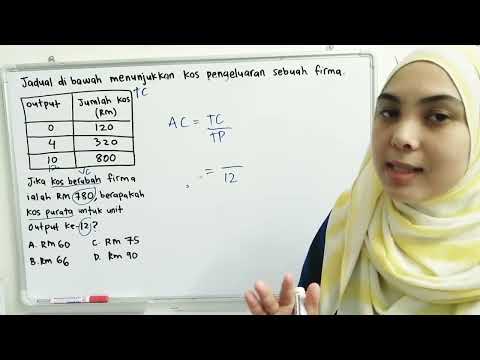 Jadual di bawah menunjukkan kos pengeluaran sebuah firma.
TC
Output Jumlah kos (RM)
0 120
4 320
10 800
12
VC
Jika kos berubah firma
ialah RM 780, berapakah
kos purata untuk unit
output ke-12?
A. RM 60 C. RM 75
B. RM 66 D. RM 90
AC = TC
TP
= 
12